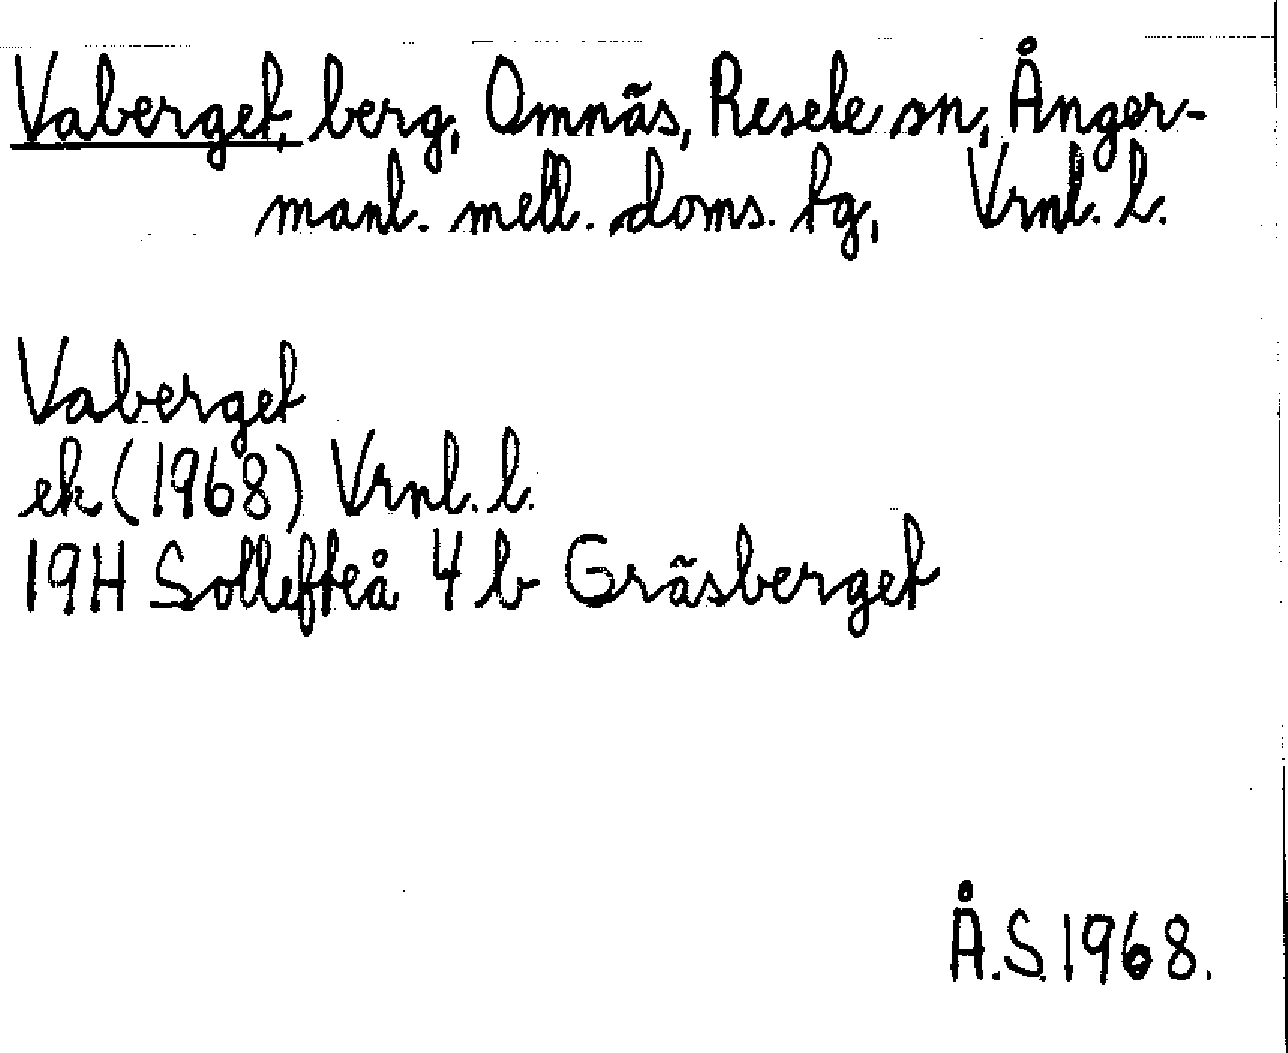 Vaberget, berg, Omnäs, Resele sn, Ånger-
manl. mell. doms. tg, Vrnl. l.
Vaberget
ek (1968) Vrnl. l.
19H Sollefteå 4 b Gräsberget
Å.S. 1968.